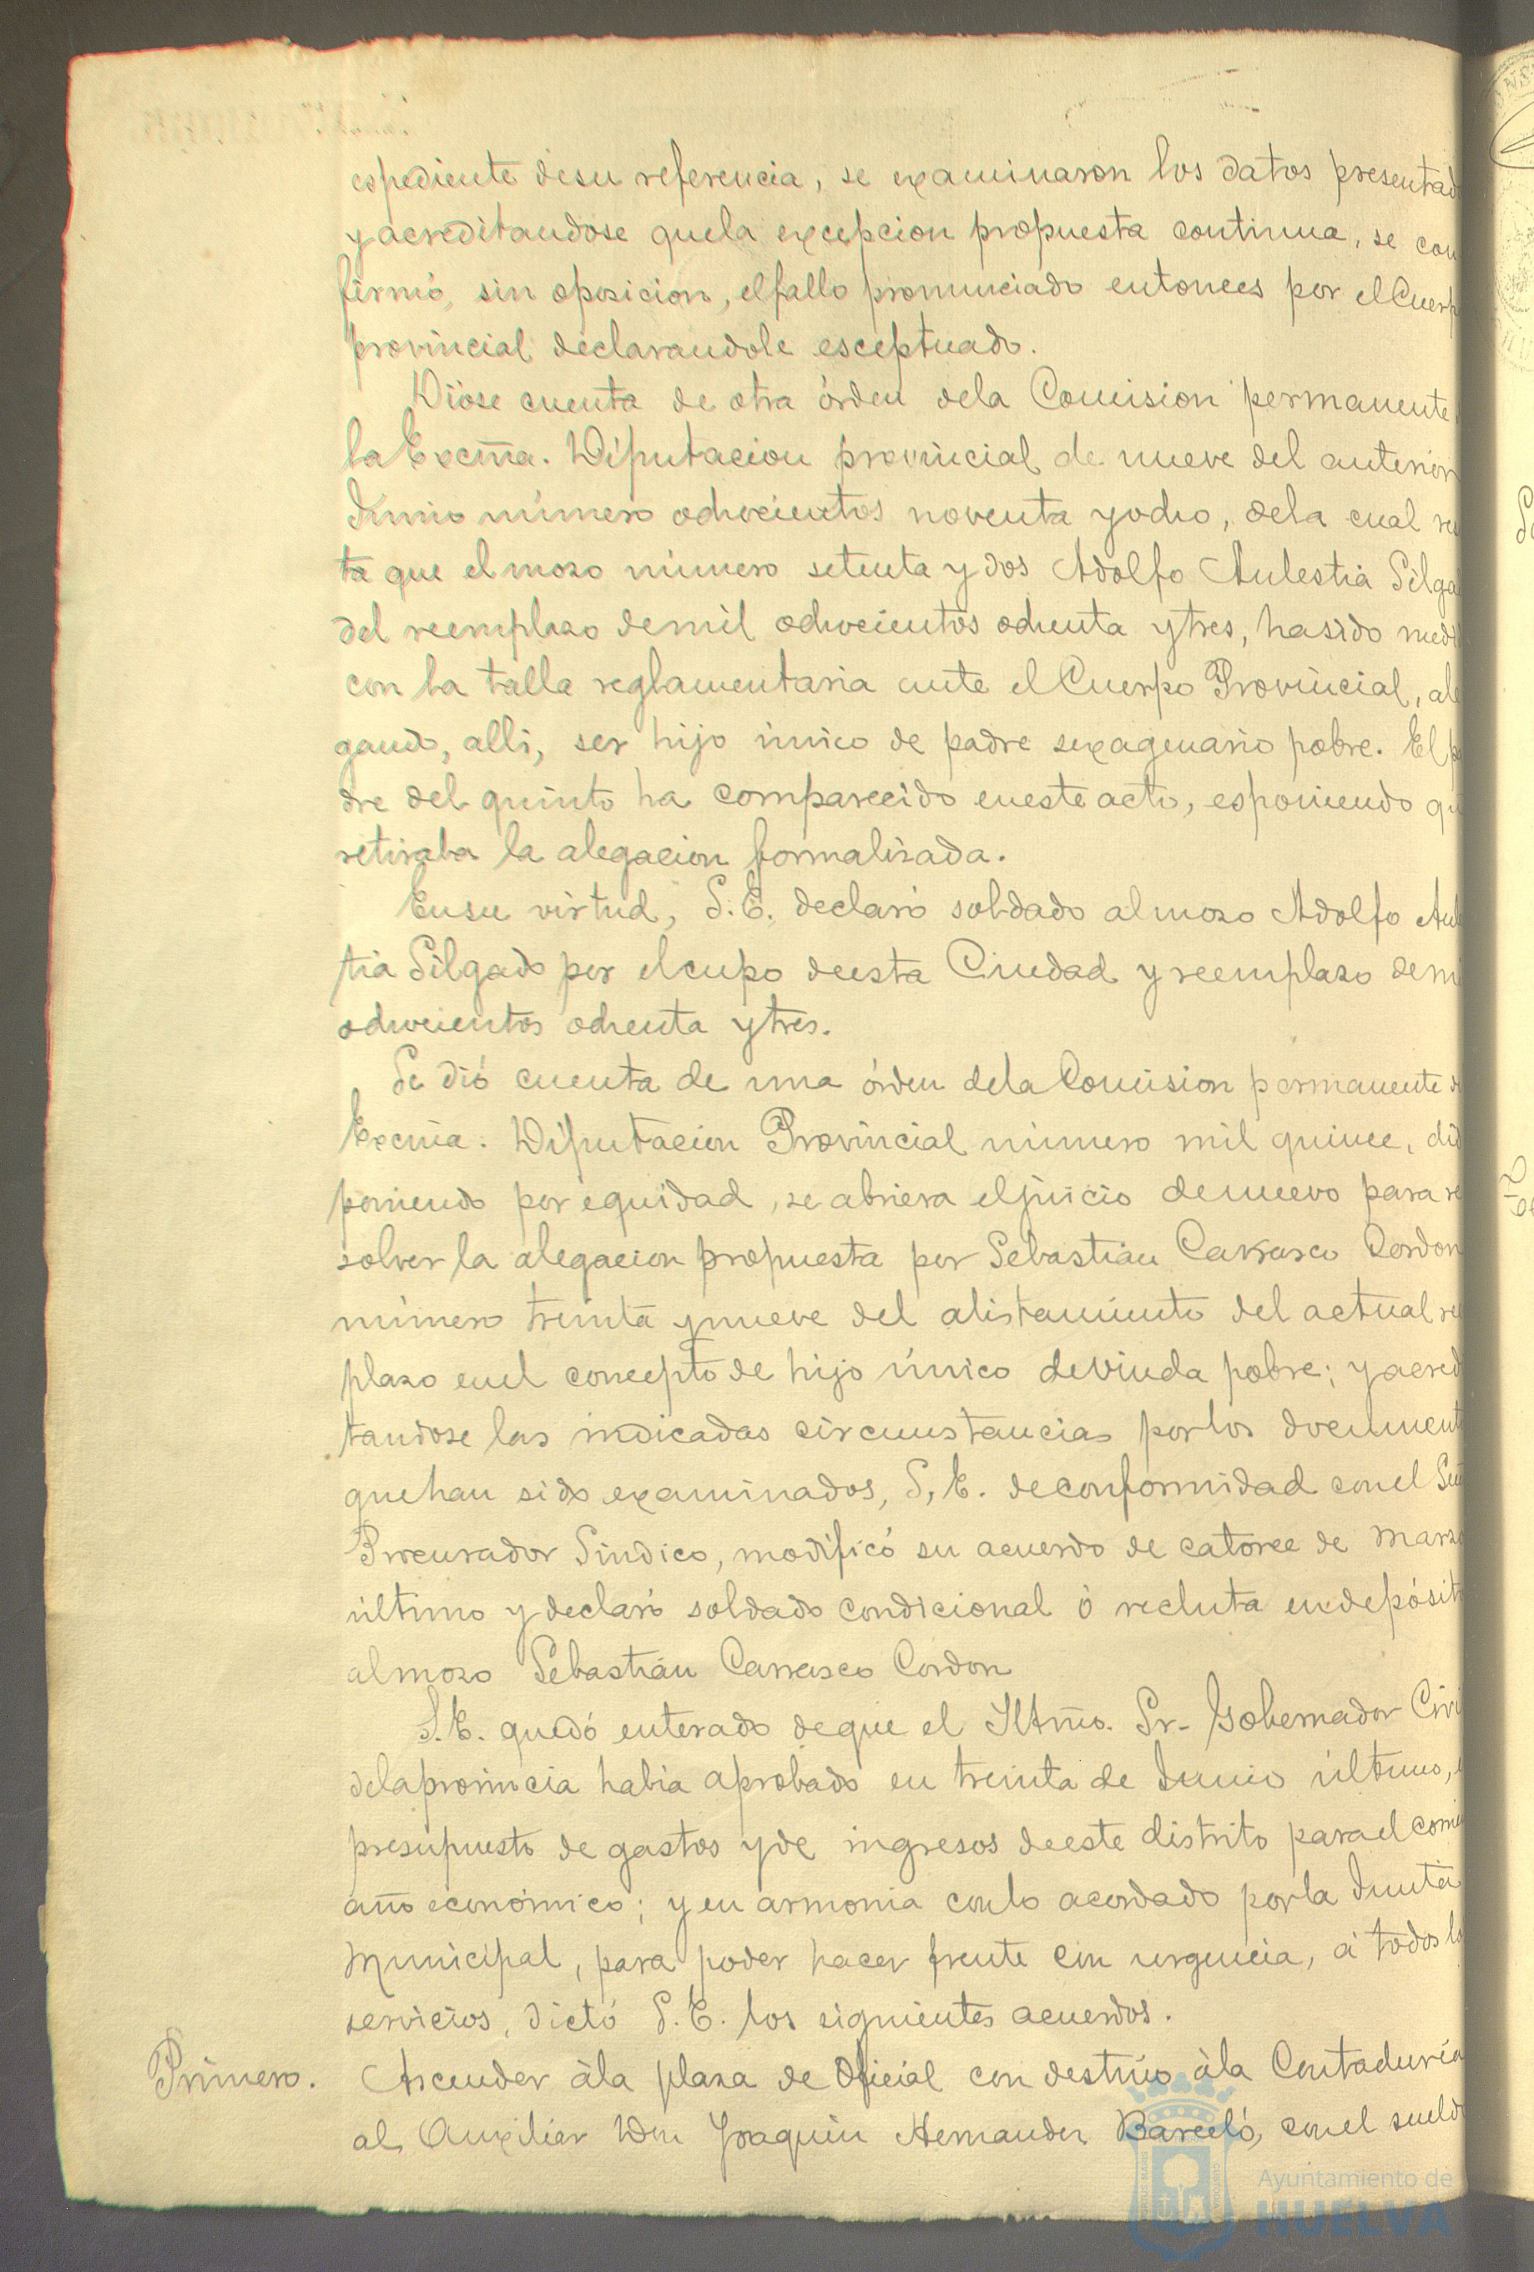 espediente desu referencia, se examinaron los datos presentad
y acreditandose quela excepcion propuesta continua, se con
firmó, sin oposicion, el fallo pronunciado entonces por el Cuerp
provincial declarandole esceptuado.
Dióse cuenta de otra órden dela Comision permanente
la Excma. Diputacion provincial de nueve del anterior
Junio número ochocientos noventa y ocho, dela cual re
ta que el mozo número setenta y dos Adolfo Aulestia Silga
del reemplazo de mil ochocientos ochenta y tres, ha sido medi
con la talla reglamentaria ante el Cuerpo Provincial, ale
gando, alli, ser hijo único de padre sexagenario pobre. El p
dre del quinto ha comparecido en este acto, esponiendo q
retiraba la alegacion formalizada.
En su virtud, S.E. declaró soldado al mozo Adolfo Aul
tia Silgado por el cupo deesta Ciudad y reemplazo de mi
ochocientos ochenta y tres.
Se dió cuenta de una órden dela Comision permanente d
Excma. Diputacion Provincial número mil quince, dis
poniendo por equidad, se abriera el juicio de nuevo para re
solver la alegacion propuesta por Sebastián Carrasco Cordon
número treinta y nueve del alistamiento del actual re
plazo en el concepto de hijo único de viuda pobre; y acredi
tandose las indicadas circunstancias por los document
que han sido examinados, S.E. de conformidad con el Señ
Procurador Sindico, modificó su acuerdo de catorce de Marzo
último y declaró soldado condicional ó recluta en depósit
al mozo Sebastián Carrasco Cordon
S.E. quedó enterado de que el Iltmo. Sr. Gobernador Civi
dela provincia habia aprobado en treinta de Junio último,
presupuesto de gastos y de ingresos deeste distrito para el corri
año económico; y en armonia conlo acordado por la Junta
Municipal, para poder hacer frente con urgencia, á todos lo
servicios, dictó S.E. los siguientes acuerdos.
Primero. Ascender ála plaza de Oficial con destino ála Contaduría
al Auxiliar Don Joaquin Hernandez Barceló, con el sueldo
Ayuntamiento de
HUELVA